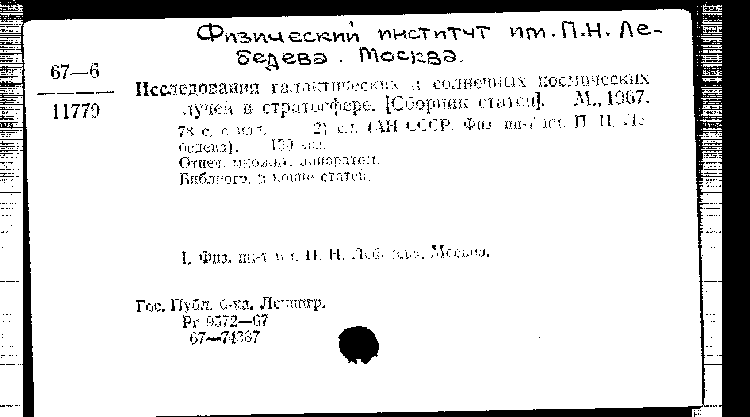 Физический институт им. П.Н. Ле-
бедева. Москва.
67—6
11779
Исследования галактических и солнечных космических
лучей в стратосфере. [Сборник статей]. М., 1967.
78 с. с 21 см. (АН СССР. Физ. ин-т им. П. Н. Ле-
бедева). 150 экз.
Отпеч. множит. аппаратом.
Библиогр. в конце статей.
I. Физ. ин-т им. П. Н. Лебедева. Москва.
Гос. Публ. б-ка. Ленингр.
Рг 9572—67
67—74367